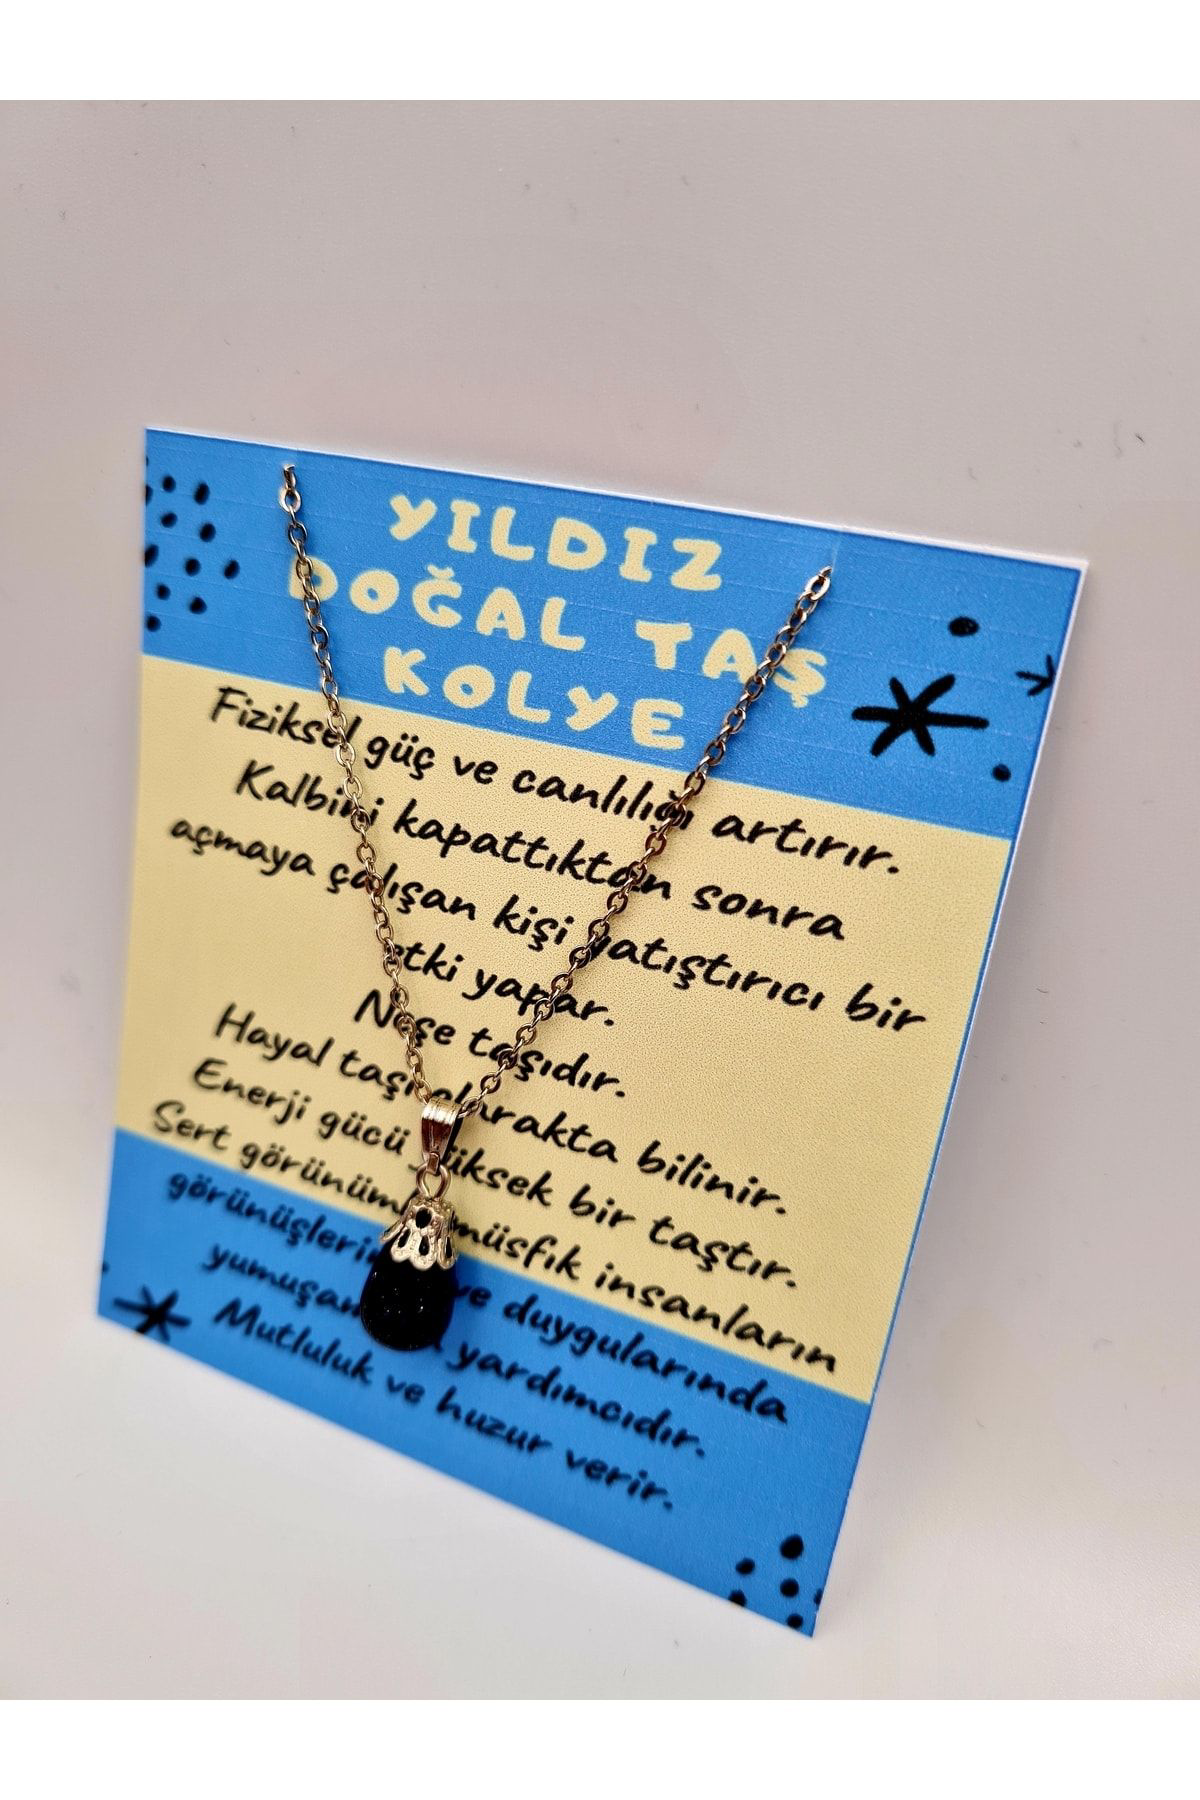 YILDIZ
DOĞAL TAŞ
KOLYE
Fiziksel güç ve canlılığı artırır.
Kalbini kapattıktan sonra
açmaya çalışan kişi yatıştırıcı bir
etki yapar.
Neşe taşıdır.
Hayal taşı olarakta bilinir.
Enerji gücü yüksek bir taştır.
Sert görünümlü müsfik insanların
görünüşlerinde ve duygularında
yardımcıdır.
Mutluluk ve huzur verir.